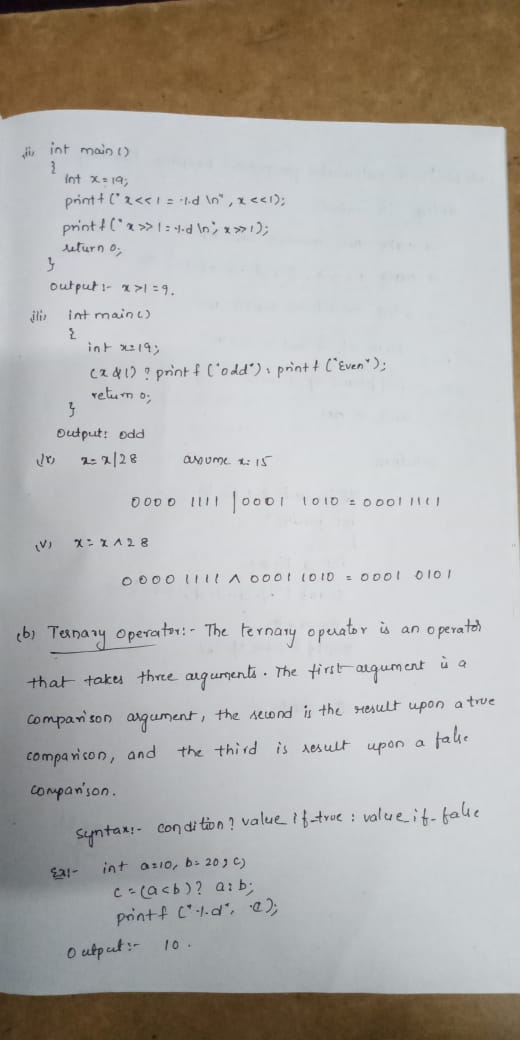 ii) int main()
{
int x=19;
printf("x<<1 = %d \n", x<<1);
printf("x>>1=%d\n", x>>1);
return 0;
}
output :- x>1=9.
iii) int main()
{
int x=19;
(x &1) ? printf("odd"): printf("Even");
return 0;
}
Output: odd
iv) x= x|28 assume x=15
0000 1111 | 0001 1010 = 0001 1111
(V) x= x ^ 28
0000 1111 ^ 0001 1010 = 0001 0101
(b) Ternary operator:- The ternary operator is an operator
that takes three arguments. The first argument is a
comparison argument, the second is the result upon a true
comparison, and the third is result upon a false
comparison.
Syntax:- condition? value if-true : value if-false
Ex:- int a=10, b=20, c;
c = (a<b)? a:b;
printf("%d", c);
Output:- 10.